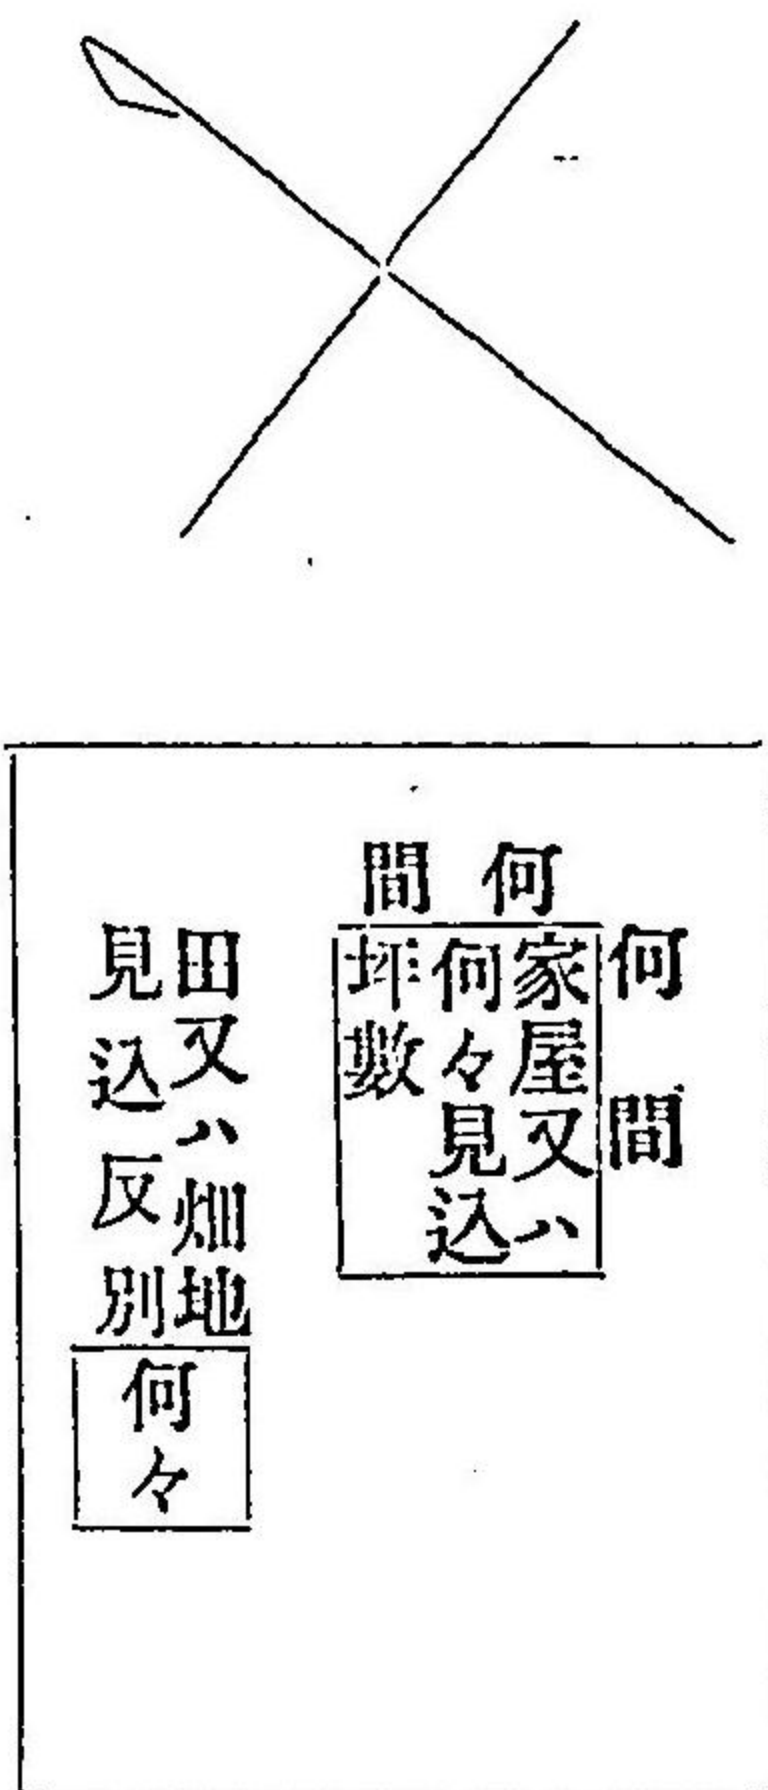 何間
何間
家屋又ハ
何々見込
坪數
田又ハ畑地
見込反別
何々